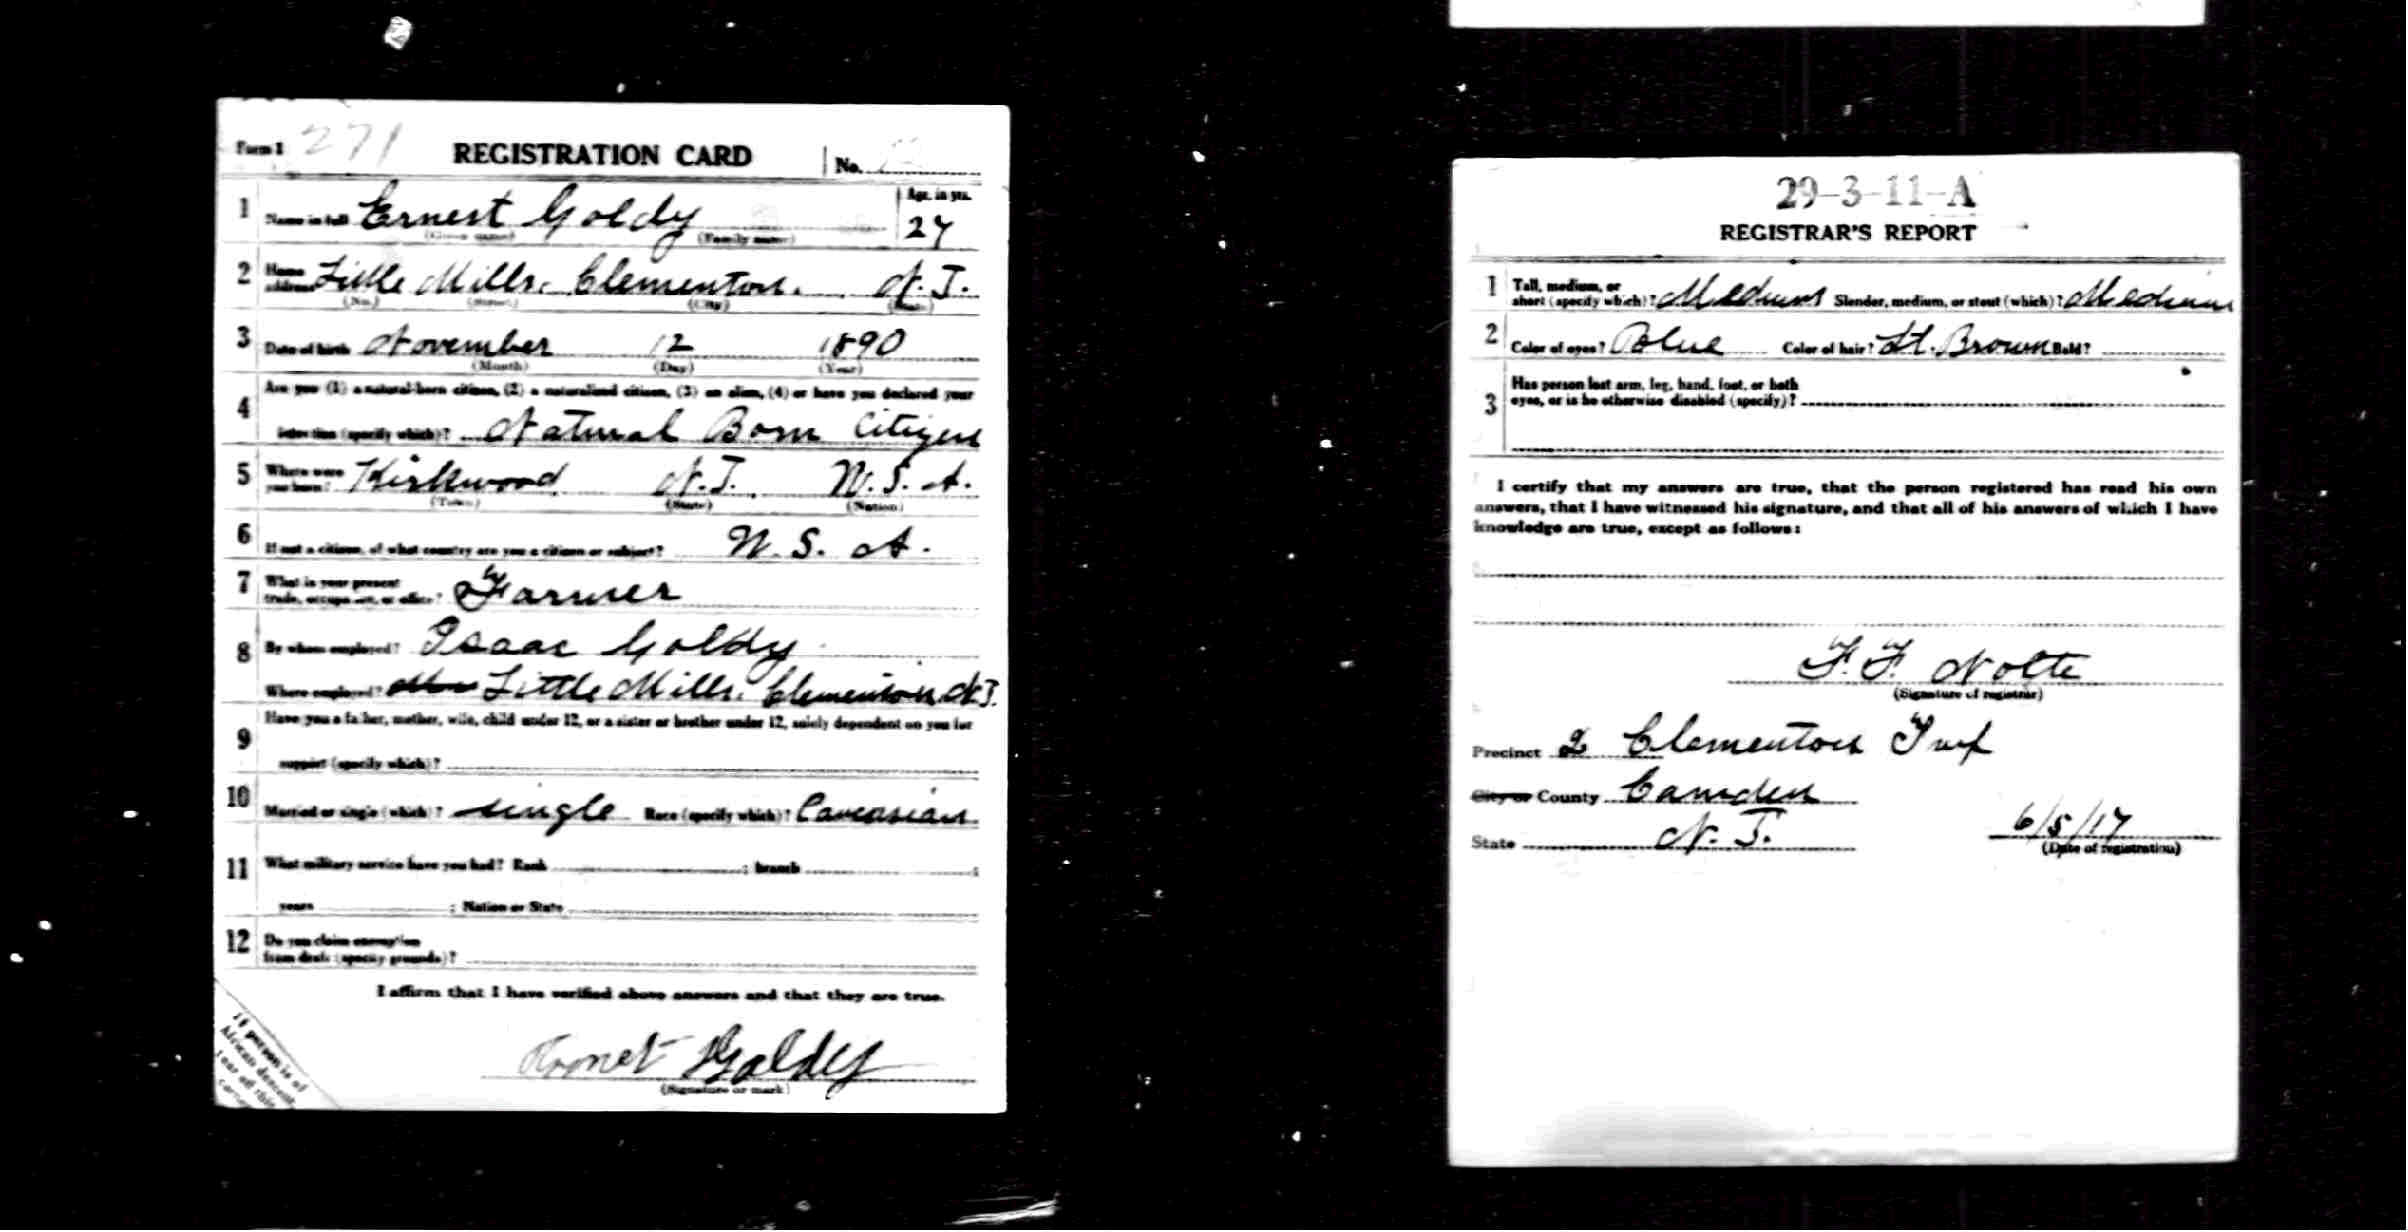 Form 1 271 REGISTRATION CARD No.
1 Name in full Ernest Goldy Age, in yrs. 27
(Given name) (Family name)
2 Home address Little Mills, Clementon. N. J.
(No.) (Street) (City) (State)
3 Date of birth November 12 1890
(Month) (Day) (Year)
4 Are you (1) a natural-born citizen, (2) a naturalized citizen, (3) an alien, (4) or have you declared your
intention (specify which)? Natural Born Citizen
5 Where were you born? Kirkwood N.J. U. S. A.
(Town) (State) (Nation)
6 If not a citizen, of what country are you a citizen or subject? U. S. A.
7 What is your present
trade, occupation, or office? Farmer
8 By whom employed? Isaac Goldy
Where employed? Little Mills, Clementon, N.J.
9 Have you a father, mother, wife, child under 12, or a sister or brother under 12, solely dependent on you for
support (specify which)?
10 Married or single (which)? single Race (specify which)? Caucasian
11 What military service have you had? Rank ; branch ;
years ; Nation or State
12 Do you claim exemption
from draft (specify grounds)?
I affirm that I have verified above answers and that they are true.
Ernest Goldy
(Signature or mark)
If person is of
African descent,
tear off this
corner
29-3-11-A
REGISTRAR'S REPORT
1 Tall, medium, or
short (specify which)? Medium Slender, medium, or stout (which)? Medium
2 Color of eyes? Blue Color of hair? Lt. Brown Bald?
3 Has person lost arm, leg, hand, foot, or both
eyes, or is he otherwise disabled (specify)?
I certify that my answers are true, that the person registered has read his own
answers, that I have witnessed his signature, and that all of his answers of which I have
knowledge are true, except as follows:
F. F. Nolte
(Signature of registrar)
Precinct 2 Clementon Twp
City or County Camden
State N. J. 6/5/17
(Date of registration)